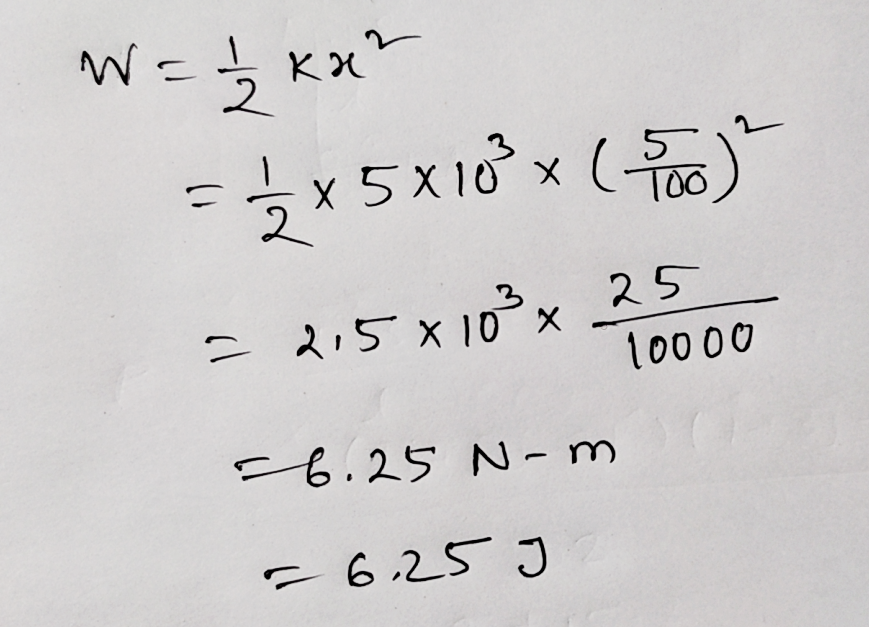 W = 1/2 Kx²
= 1/2 × 5 × 10³ × (5/100)²
= 2.5 × 10³ × 25/10000
= 6.25 N-m
= 6.25 J